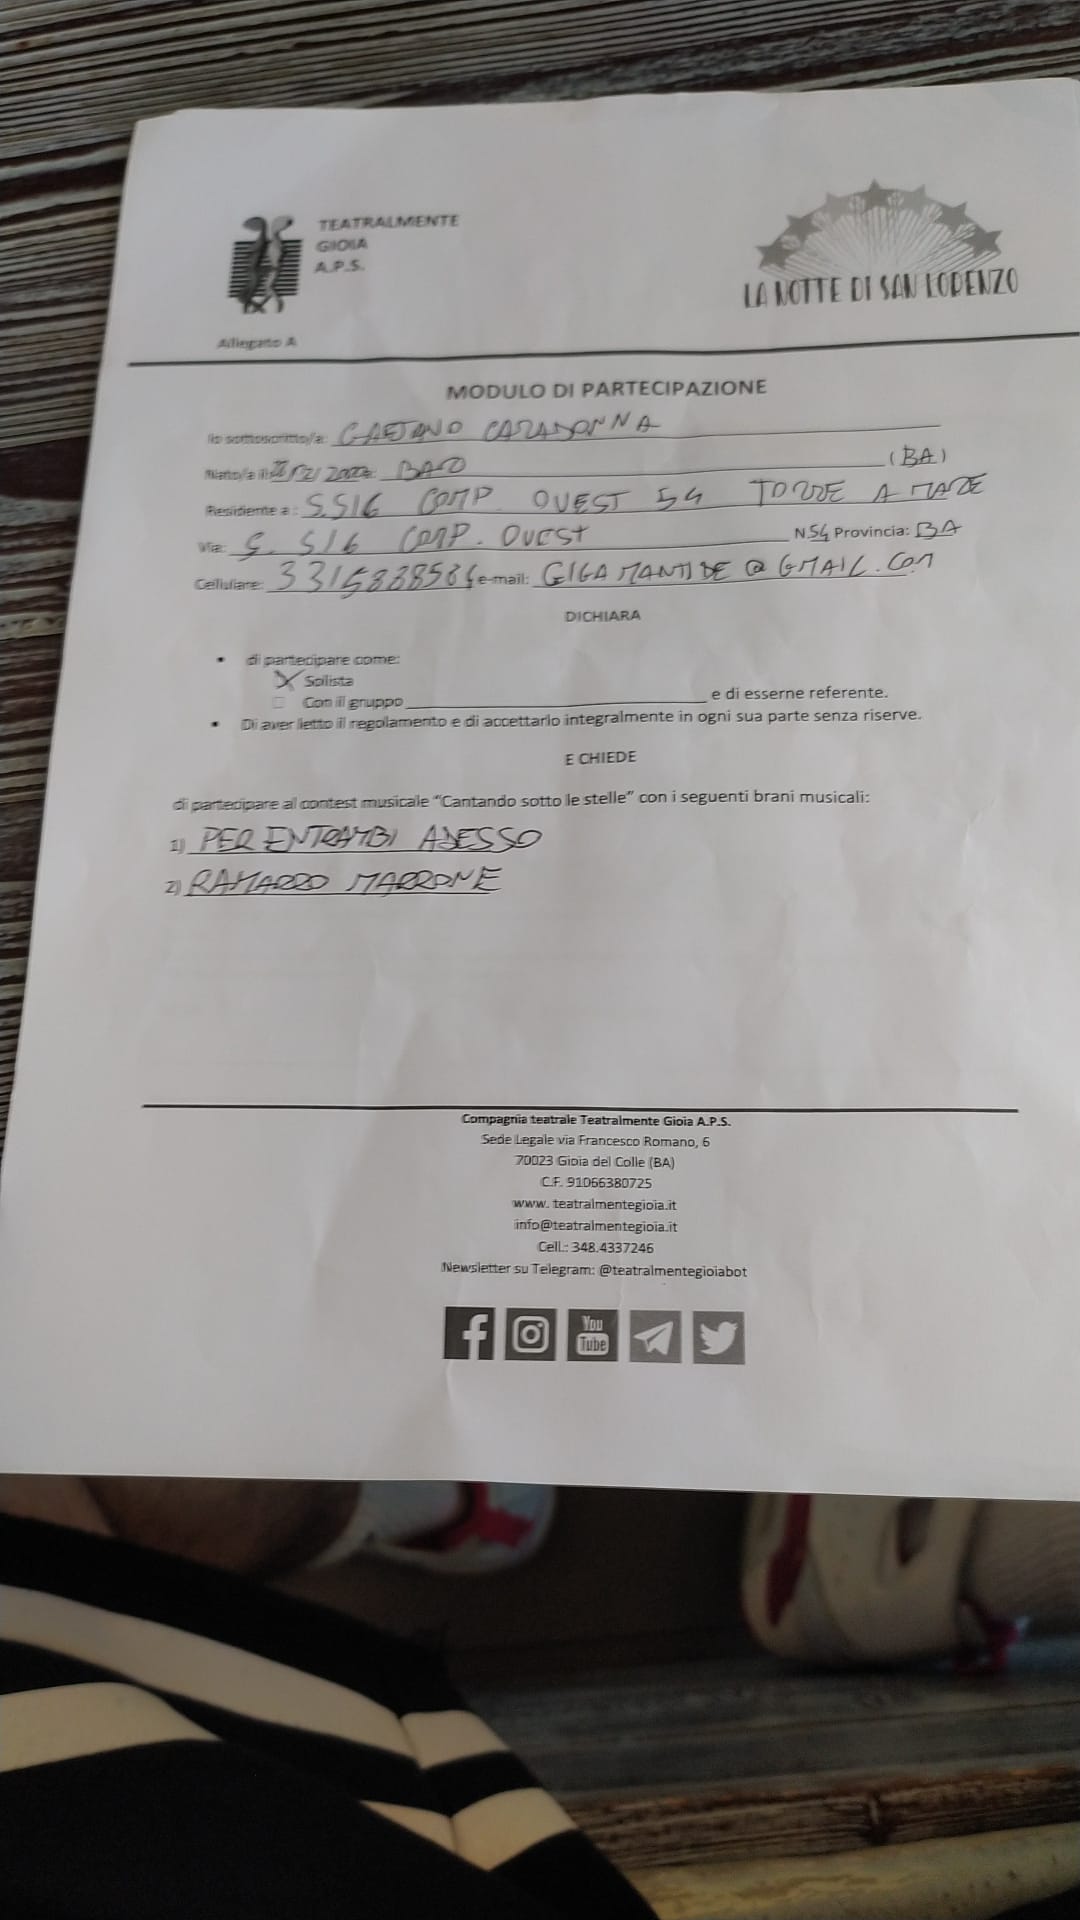 TEATRALMENTE
GIOIA
A.P.S.
LA NOTTE DI SAN LORENZO
Allegato A
MODULO DI PARTECIPAZIONE
Io sottoscritto/a: GAETANO CARADONNA
Nato/a il: BARO (BA)
Residente a: S.S16 COMP. OVEST 54 TORRE A MARE
Via: S. S16 COMP. OVEST N.54 Provincia: BA
Cellulare: e-mail: GIGAMANTIDE@GMAIL.COM
DICHIARA
• di partecipare come:
Solista
Con il gruppo e di esserne referente.
• Di aver letto il regolamento e di accettarlo integralmente in ogni sua parte senza riserve.
E CHIEDE
di partecipare al contest musicale "Cantando sotto le stelle" con i seguenti brani musicali:
1) PER ENTRAMBI ADESSO
2) RAMARRO MARRONE
Compagnia teatrale Teatralmente Gioia A.P.S.
Sede Legale via Francesco Romano, 6
70023 Gioia del Colle (BA)
C.F. 91066380725
www. teatralmentegioia.it
info@teatralmentegioia.it
Cell.: 348.4337246
Newsletter su Telegram: @teatralmentegioiabot
You
Tube